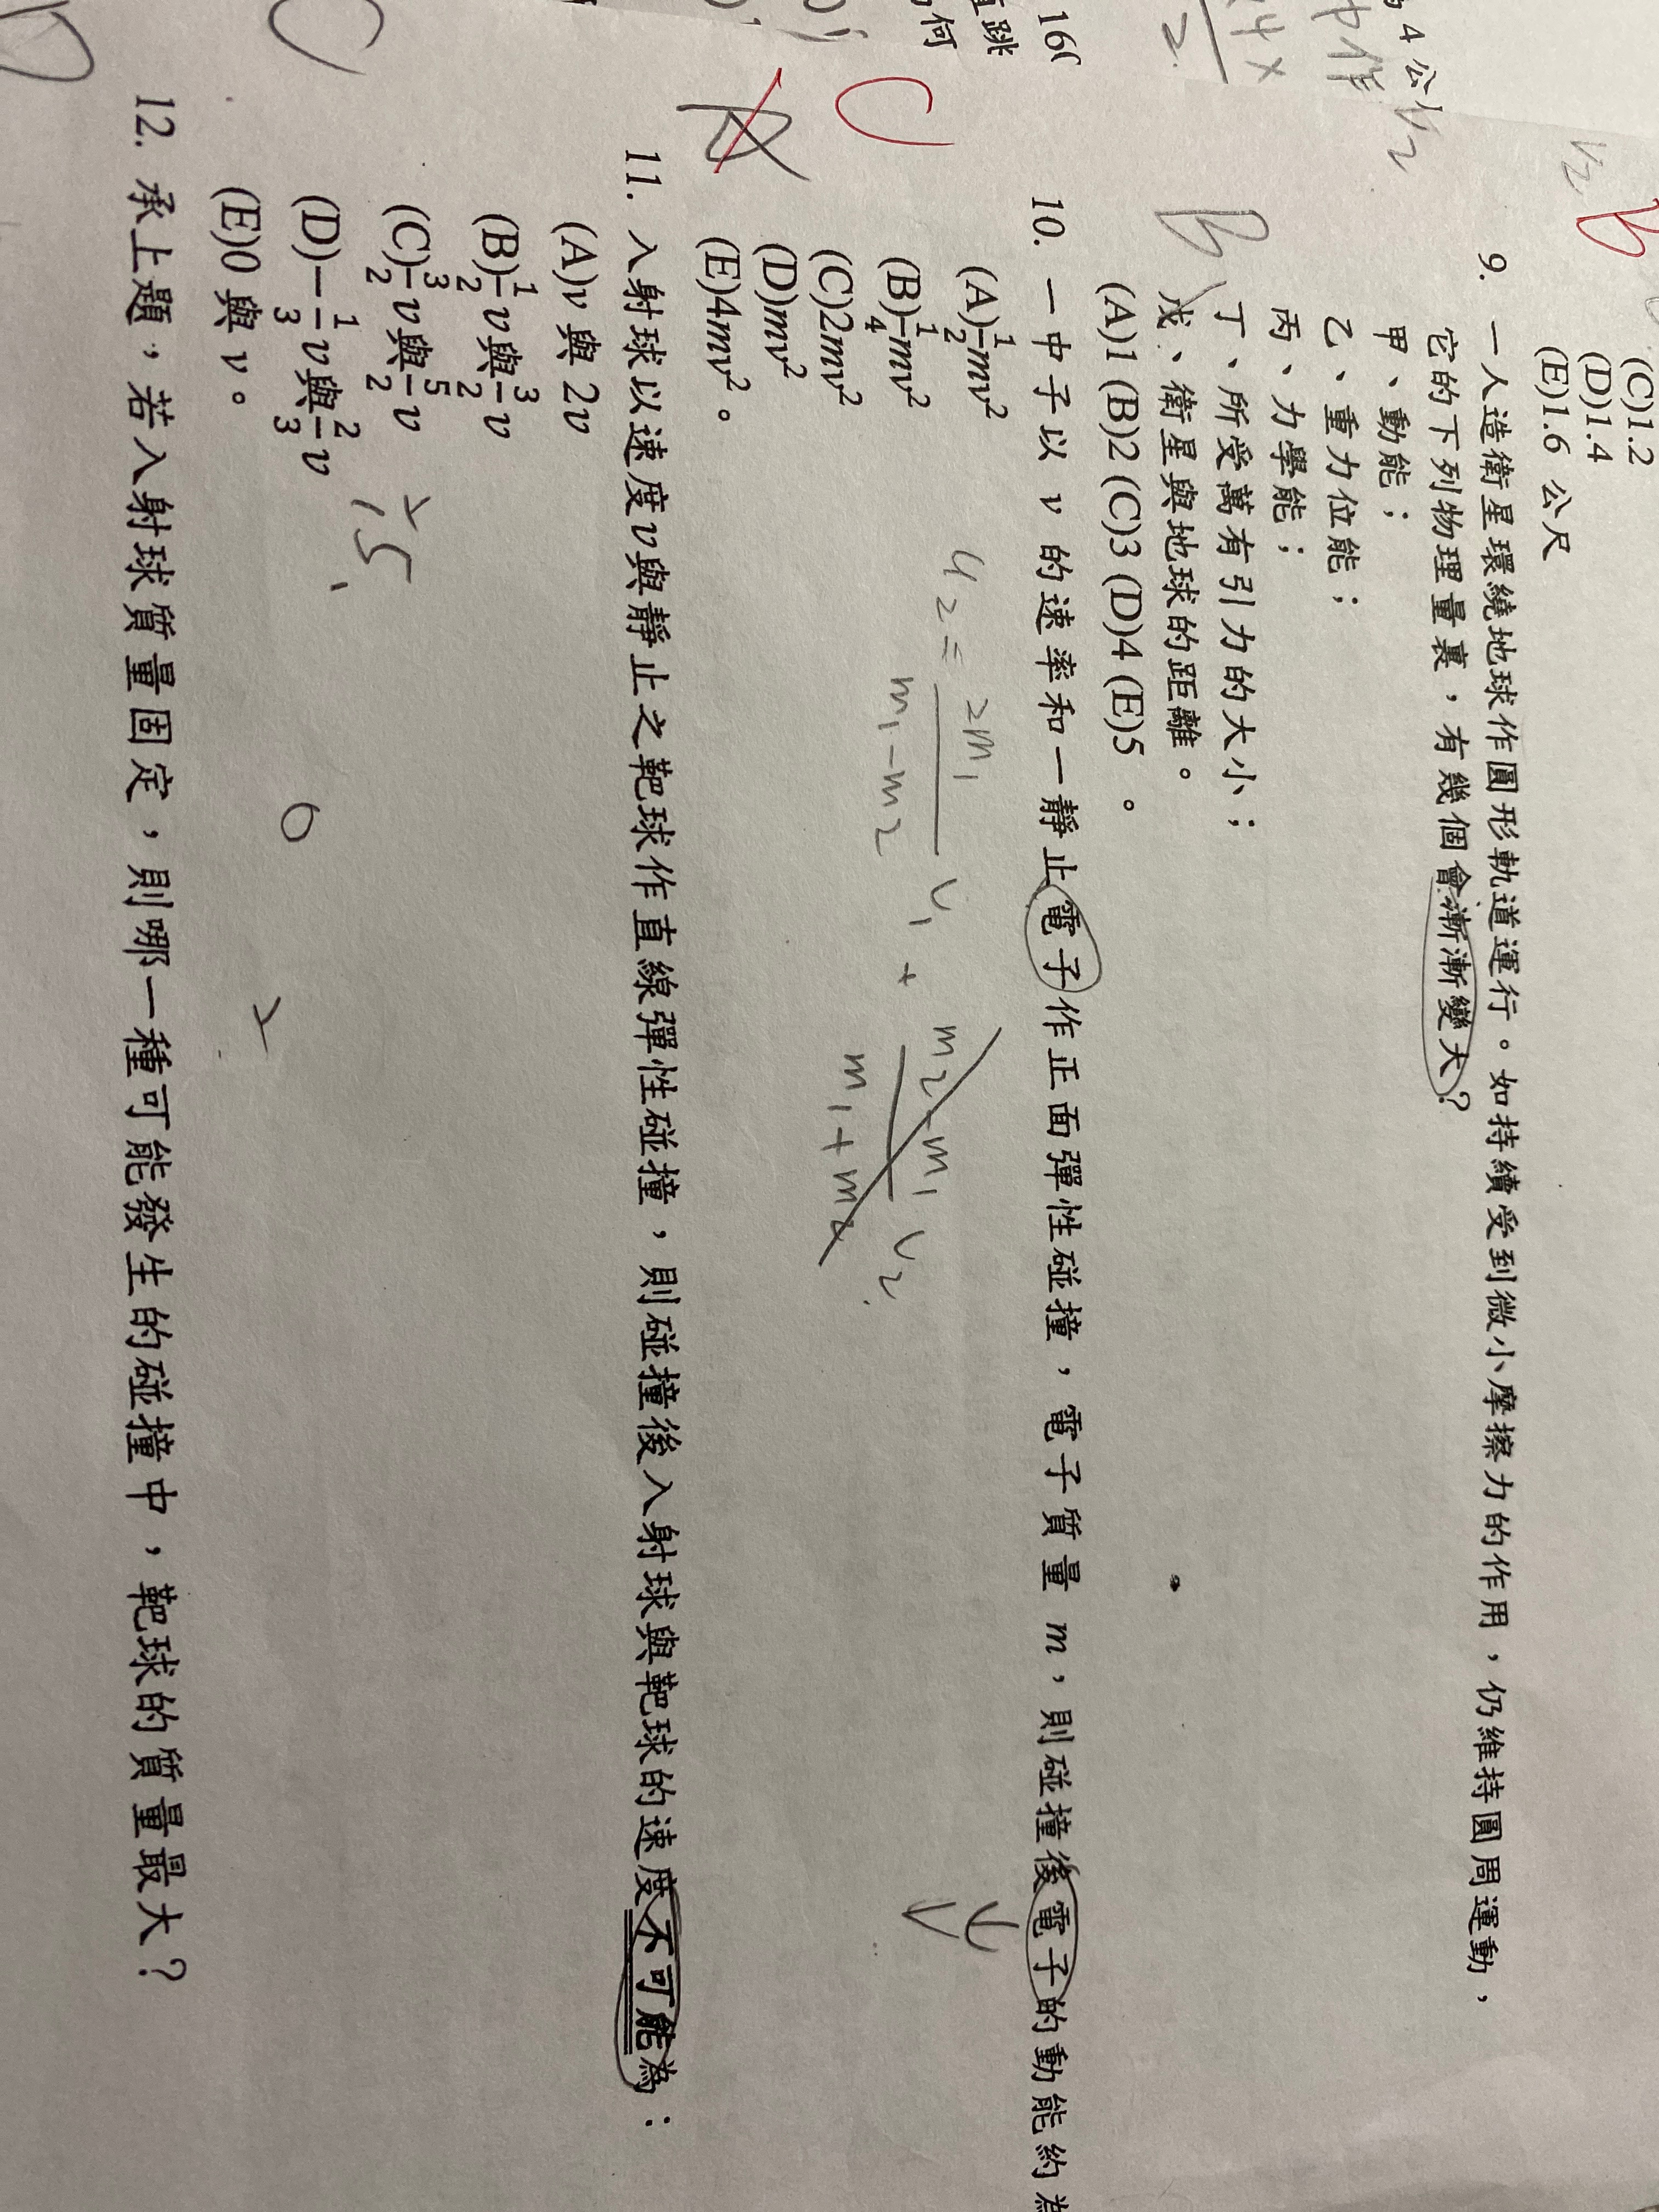 (C)1.2
(D)1.4
(E)1.6 公尺
9. 一人造衛星環繞地球作圓形軌道運行。如持續受到微小摩擦力的作用，仍維持圓周運動，
它的下列物理量裏，有幾個會漸漸變大？
甲、動能；
乙、重力位能；
丙、力學能；
丁、所受萬有引力的大小；
戊、衛星與地球的距離。
(A)1 (B)2 (C)3 (D)4 (E)5 。
B
10. 一中子以 v 的速率和一靜止電子作正面彈性碰撞，電子質量 m，則碰撞後電子的動能約為
(A)1/2 mv²
(B)1/4 mv²
(C)2mv²
(D)mv²
(E)4mv²。
C
u2 = 2m1/(m1-m2) v1 + (m2-m1)/(m1+m2) v2
11. 入射球以速度v與靜止之靶球作直線彈性碰撞，則碰撞後入射球與靶球的速度不可能為：
(A)v 與 2v
(B)1/2 v與3/2 v
(C)3/2 v與5/2 v
(D)-1/3 v與2/3 v
(E)0 與 v。
12. 承上題，若入射球質量固定，則哪一種可能發生的碰撞中，靶球的質量最大？
C
D
4 公
V2
V2
160
直跳
何